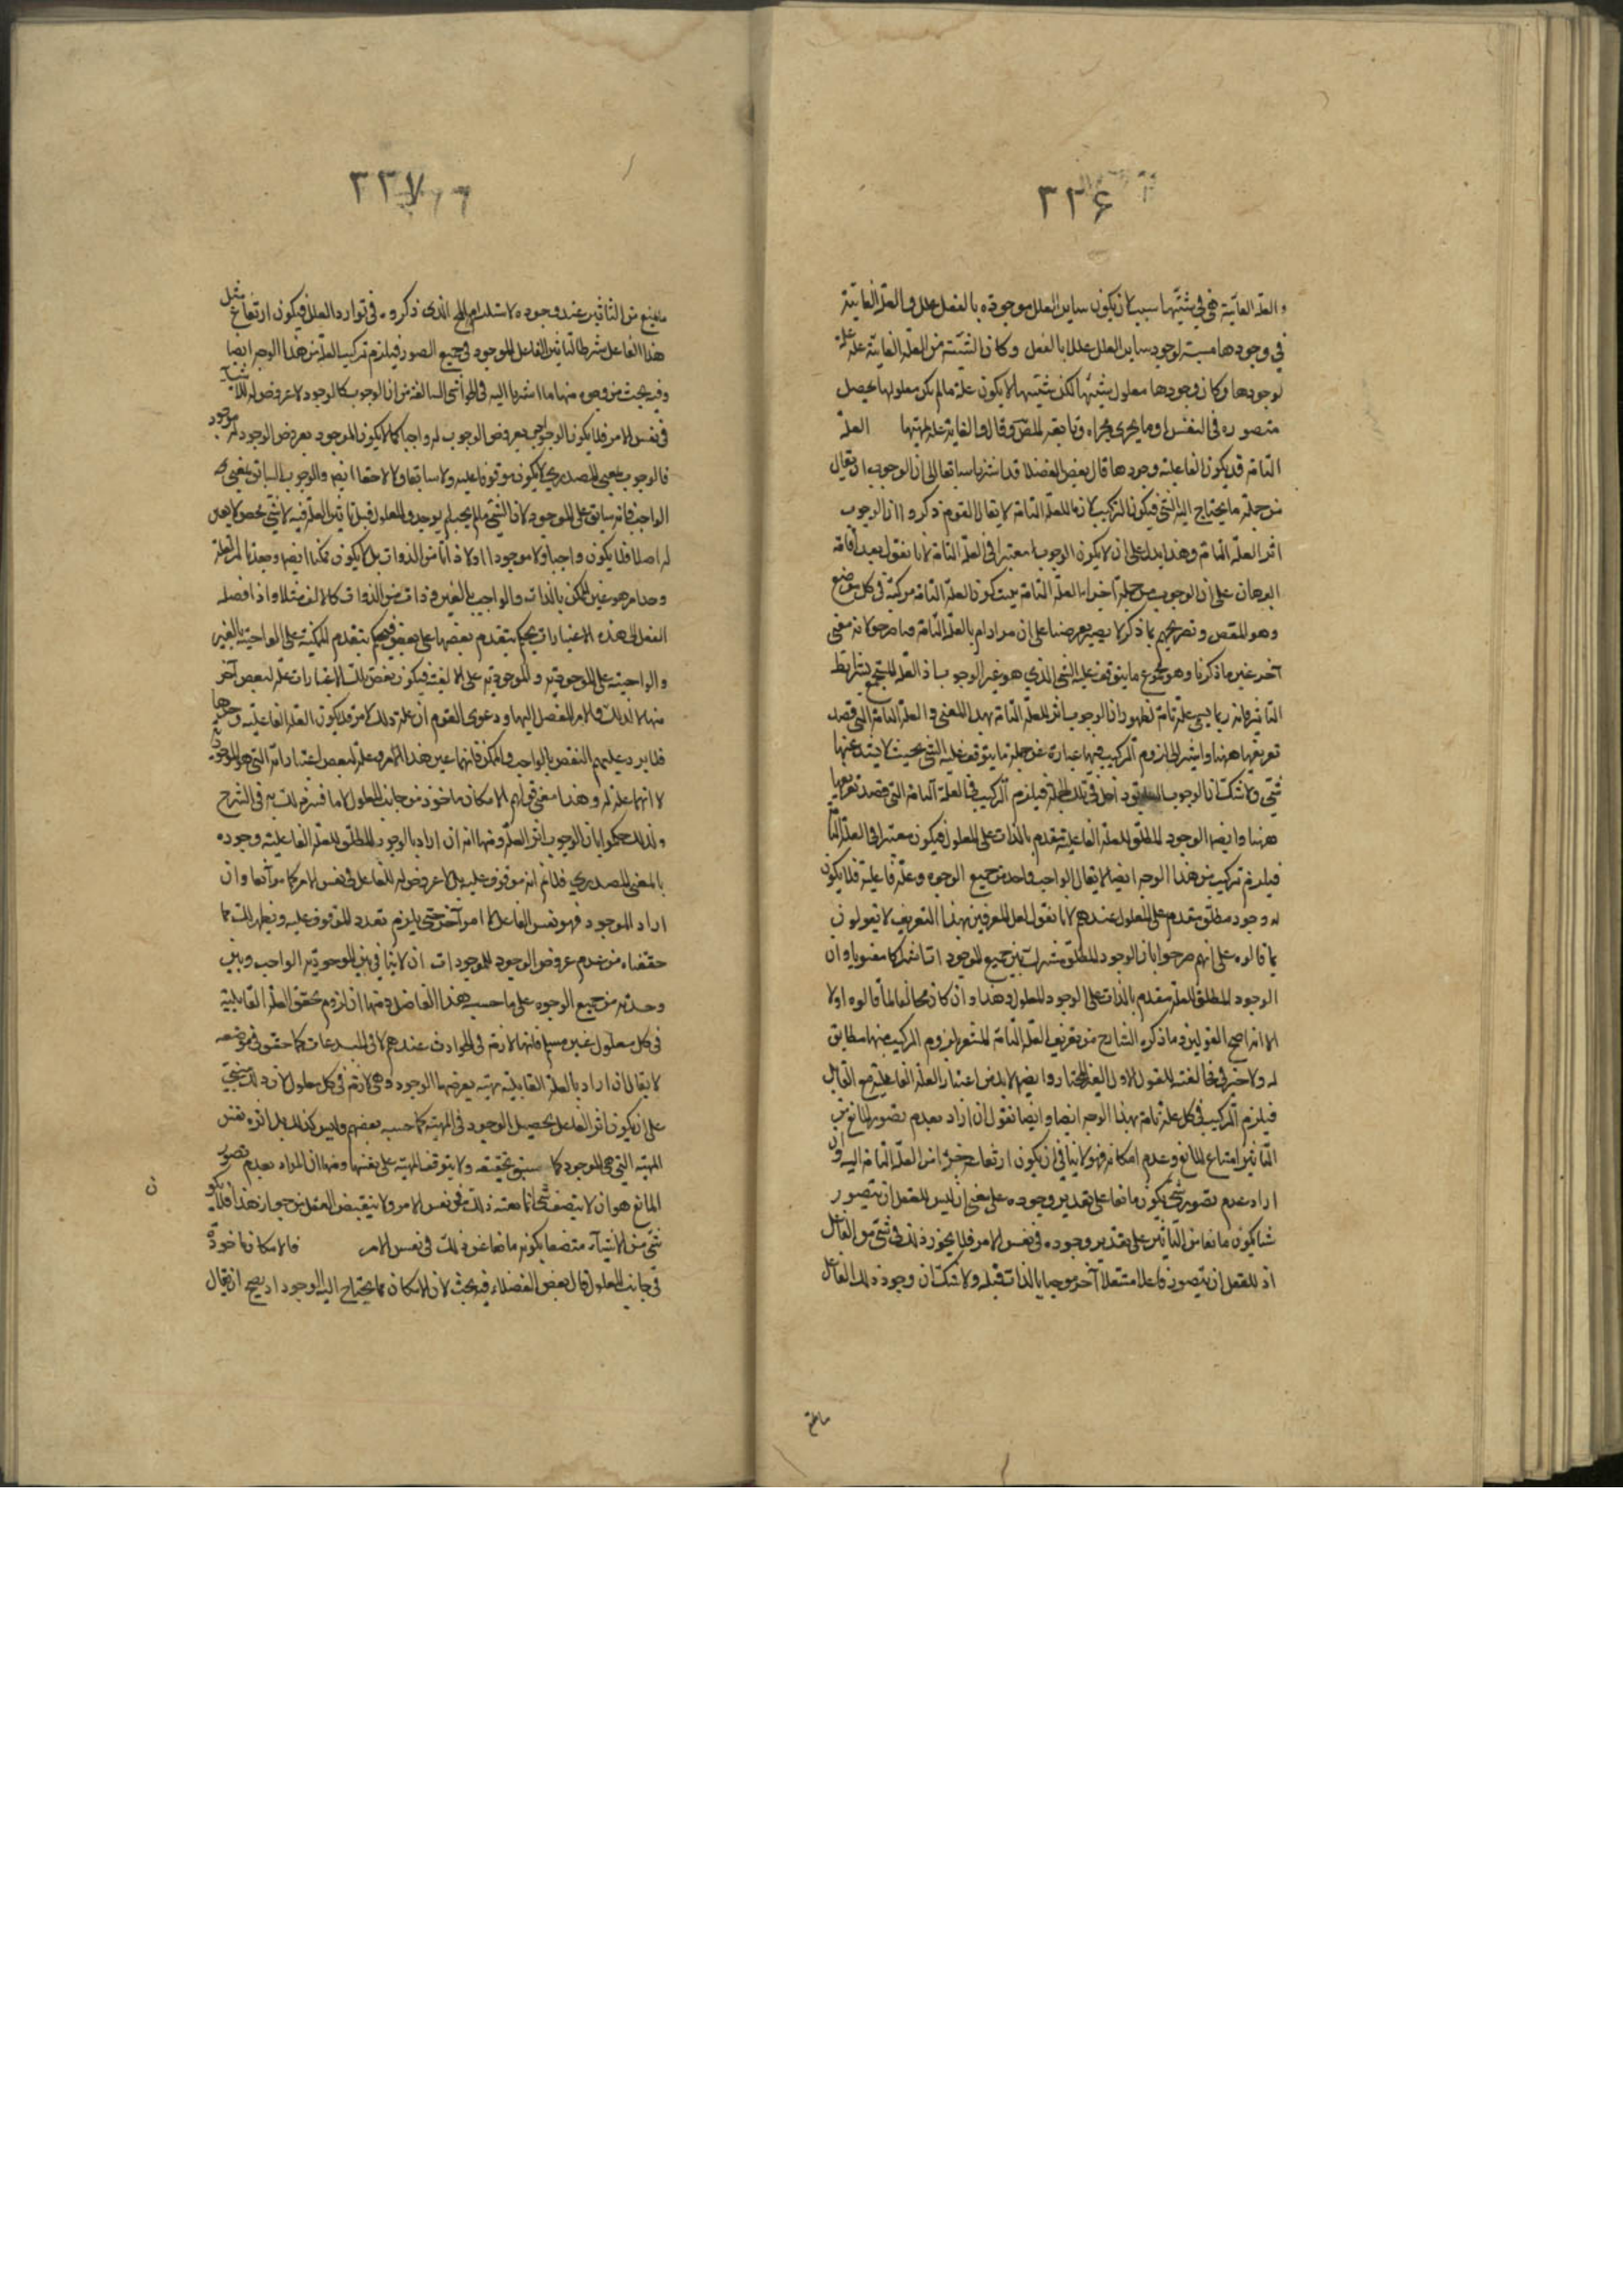 ٣٢۶
والعلة الغائية فهي في شيئيتها سبب لان يكون ساير العلل موجودة بالفعل عللا والعلة الغائية
في وجودها مسببة لوجود ساير العلل عللا بالفعل وكان الشيئية من العلة الغائية علة علة
لوجودها وكان وجودها معلول شيئيتها لكن شيئيتها لا يكون علة مالم يكن معلولها يحصل
متصوره في النفس او ما يجرى مجراه وتابعه المقص وقال والغاية علة بمهيتها العلة
التامة قد يكون الفاعلية وجودها قال بعض الفضلا قد اشرنا سابقا الى ان الوجوب
من جملة ما يحتاج اليه الشئ فيكون التركيب لازما للعلة التامة لا يقال القوم ذكروا ان الوجوب
اثر العلة التامة وهذا يدل على ان لا يكون الوجوب معتبرا في العلة التامة لانا نقول بعد اقامة
البرهان على ان الوجوب من جملة اجزاء العلة التامة يثبت كون العلة التامة مركبة في كل موضع
وهو المقص وتصريحهم بما ذكر لا يصير معرضنا على ان مرادهم بالعلة التامة معنى
آخر غير ما ذكرنا وهو مجموع ما يتوقف عليه الشئ الذي هو غير الوجوب اذ العلة المستجمع لشرايط
التاثير فانه ربما يسمى علة تامة لظهور ان الوجوب اثر للعلة التامة بهذا المعنى والعلة التامة التي قصد
تعريفها ههنا واشير الى لزوم التركيب فيها عبارة عن جملة ما يتوقف عليه الشئ بحيث لا يشذ عنها
شئ ولا شك ان الوجوب داخل في تلك الجملة فيلزم التركيب في العلة التامة التي قصد تعريفها
ههنا وايضا الوجود المطلق للعلة الفاعلية متقدم بالذات على المعلول فيكون معتبرا في العلة التامة
فيلزم تركيب من هذا الوجه ايضا لا يقال الواجب واحد من جميع الوجوه وعلة فاعلية فلا يكون
له وجود مطلق متقدم على المعلول عندهم لانا نقول لعل المعرفين بهذا التعريف لا يقولون
بما قالوه على انهم صرحوا بان الوجود المطلق مشترك بين جميع الموجودات اشتراكا معنويا وان
الوجود المطلق للعلة متقدم بالذات على الوجود للمعلول وهذا وان كان مخالفا لما قالوه اولا
الا انه اصح القولين وما ذكره الشارح من تعريف العلة التامة المشعر بلزوم التركيب فيها مطابق
له ولا خير في مخالفته للقول الاول الغير المختار وايضا لابد من اعتبار العلة الفاعلية مع القابل
فيلزم التركيب في كل علة تامة بهذا الوجه ايضا وايضا نقول ان اراد بعدم تصور المانع من
التاثير امتناع المانع وعدم امكانه فهو لا ينافي ان يكون ارتفاعه جزءا من العلة التامة اليه وان
اراد عدم تصور شئ يكون مانعا على تقدير وجوده على معنى ان ليس للعقل ان يتصور
شيئا يكون مانعا من التاثير على تقدير وجوده في نفس الامر فلا يجوز ذلك في شئ من الفاعل
اذ للعقل ان يتصور فاعلا مستقلا آخر موجبا بالذات قبله ولا شك ان وجود ذلك الفاعل
مانع
٣٣٧
مانع من التاثير عند وجوده لاستلزامه المح الذي ذكروه في توارد العلل فيكون ارتفاع مثل
هذا الفاعل شرطا لتاثير الفاعل الموجود في جميع الصور فيلزم تركيب العلة من هذا الوجه ايضا
وفيه بحث من وجوه منها ما اشرنا اليه في الحواشي السالفة من ان الوجوب كالوجود لا عروض له للاشياء
في نفس الامر فلا يكون الواجب بعروض الوجوب له واجبا كما لا يكون الموجود بعروض الوجود له موجود
فالوجوب بالمعنى المصدري لا يكون موقوفا عليه ولا سابقا ولا لاحقا ايضا والوجوب السابق بمعنى
الواجب فانه سابق على الموجود لان الشئ مالم يجب لم يوجد والمعلول قبل تاثير العلة فيه لا شئ محض لا
له اصلا فلا يكون واجبا ولا موجودا ولا ذاتا من الذوات بل لا يكون ممكنا ايضا وبعد تاثير العلة
وحد امر هو عين الممكن بالذات والواجب بالغير وذات من الذوات كالالف مثلا واذا فصله
العقل الى هذه الاعتبارات يحكم بتقدم بعضها على بعض فيحكم بتقدم الممكنية على الواجبية بالغير
والواجبية على الموجودية والموجودية على الالفية فيكون بعض تلك الاعتبارات علة لبعض آخر
منها لا لذلك الامر المفصل اليها ودعوى القوم ان علة ذلك الامر قد يكون العلة الفاعلية وحدها
فلا يرد عليهم النقض بالواجب والممكن فانهما عين هذا الامر وعلة لبعض اعتباراته التي هو الموجود
لا انهما علة له وهذا معنى قولهم الامكان ماخوذ من جانب المعلول لا ما في الشرح
ولذلك حكموا بان الوجوب اثر العلة ومنها انه ان اراد بالوجود المطلق للعلة الفاعلية وجوده
بالمعنى المصدري فلا نم انه موقوف عليه بل لا عروض له للفاعل في نفس الامر كما مر آنفا وان
اراد الموجود فهو نفس الفاعل لا امر آخر حتى يلزم تعدد الموقوف عليه ويظهر لك مما
حققناه من عدم عروض الوجود للموجودات ان لا تنافي بين الموجودية الواجب وبين
وحدته من جميع الوجوه على ما حسبه هذا الفاضل ومنها ان لزوم تحقق العلة القابلية
في كل معلول غير مسلم فانها لازمة في الحوادث عندهم لا في المبدعات كما حقق في موضعه
لا يقال ان اراد بالعلة القابلية مهية يعرضها الوجود وهي لازمة في كل معلول لان ذلك مبني
على ان يكون اثر الفاعل تحصيل الوجود في المهية كما حسبه بعضهم وليس كذلك بل اثره نفس
المهية التي هي الموجود كما سبق تحقيقه ولا يتوقف المهية على نفسها ومنها ان المراد بعدم تصور
المانع هو ان لا يتصف شئ بمانعيته ذلك في نفس الامر ولا ينقبض العقل من جواز هذا فلا يكون
شئ من الاشياء متصفا بكونه مانعا عن ذلك في نفس الامر فالامكان ماخوذة
في جانب المعلول قال بعض الفضلاء فيه بحث لان الامكان مما يحتاج اليه الوجود اذ يصح ان يقال
ن